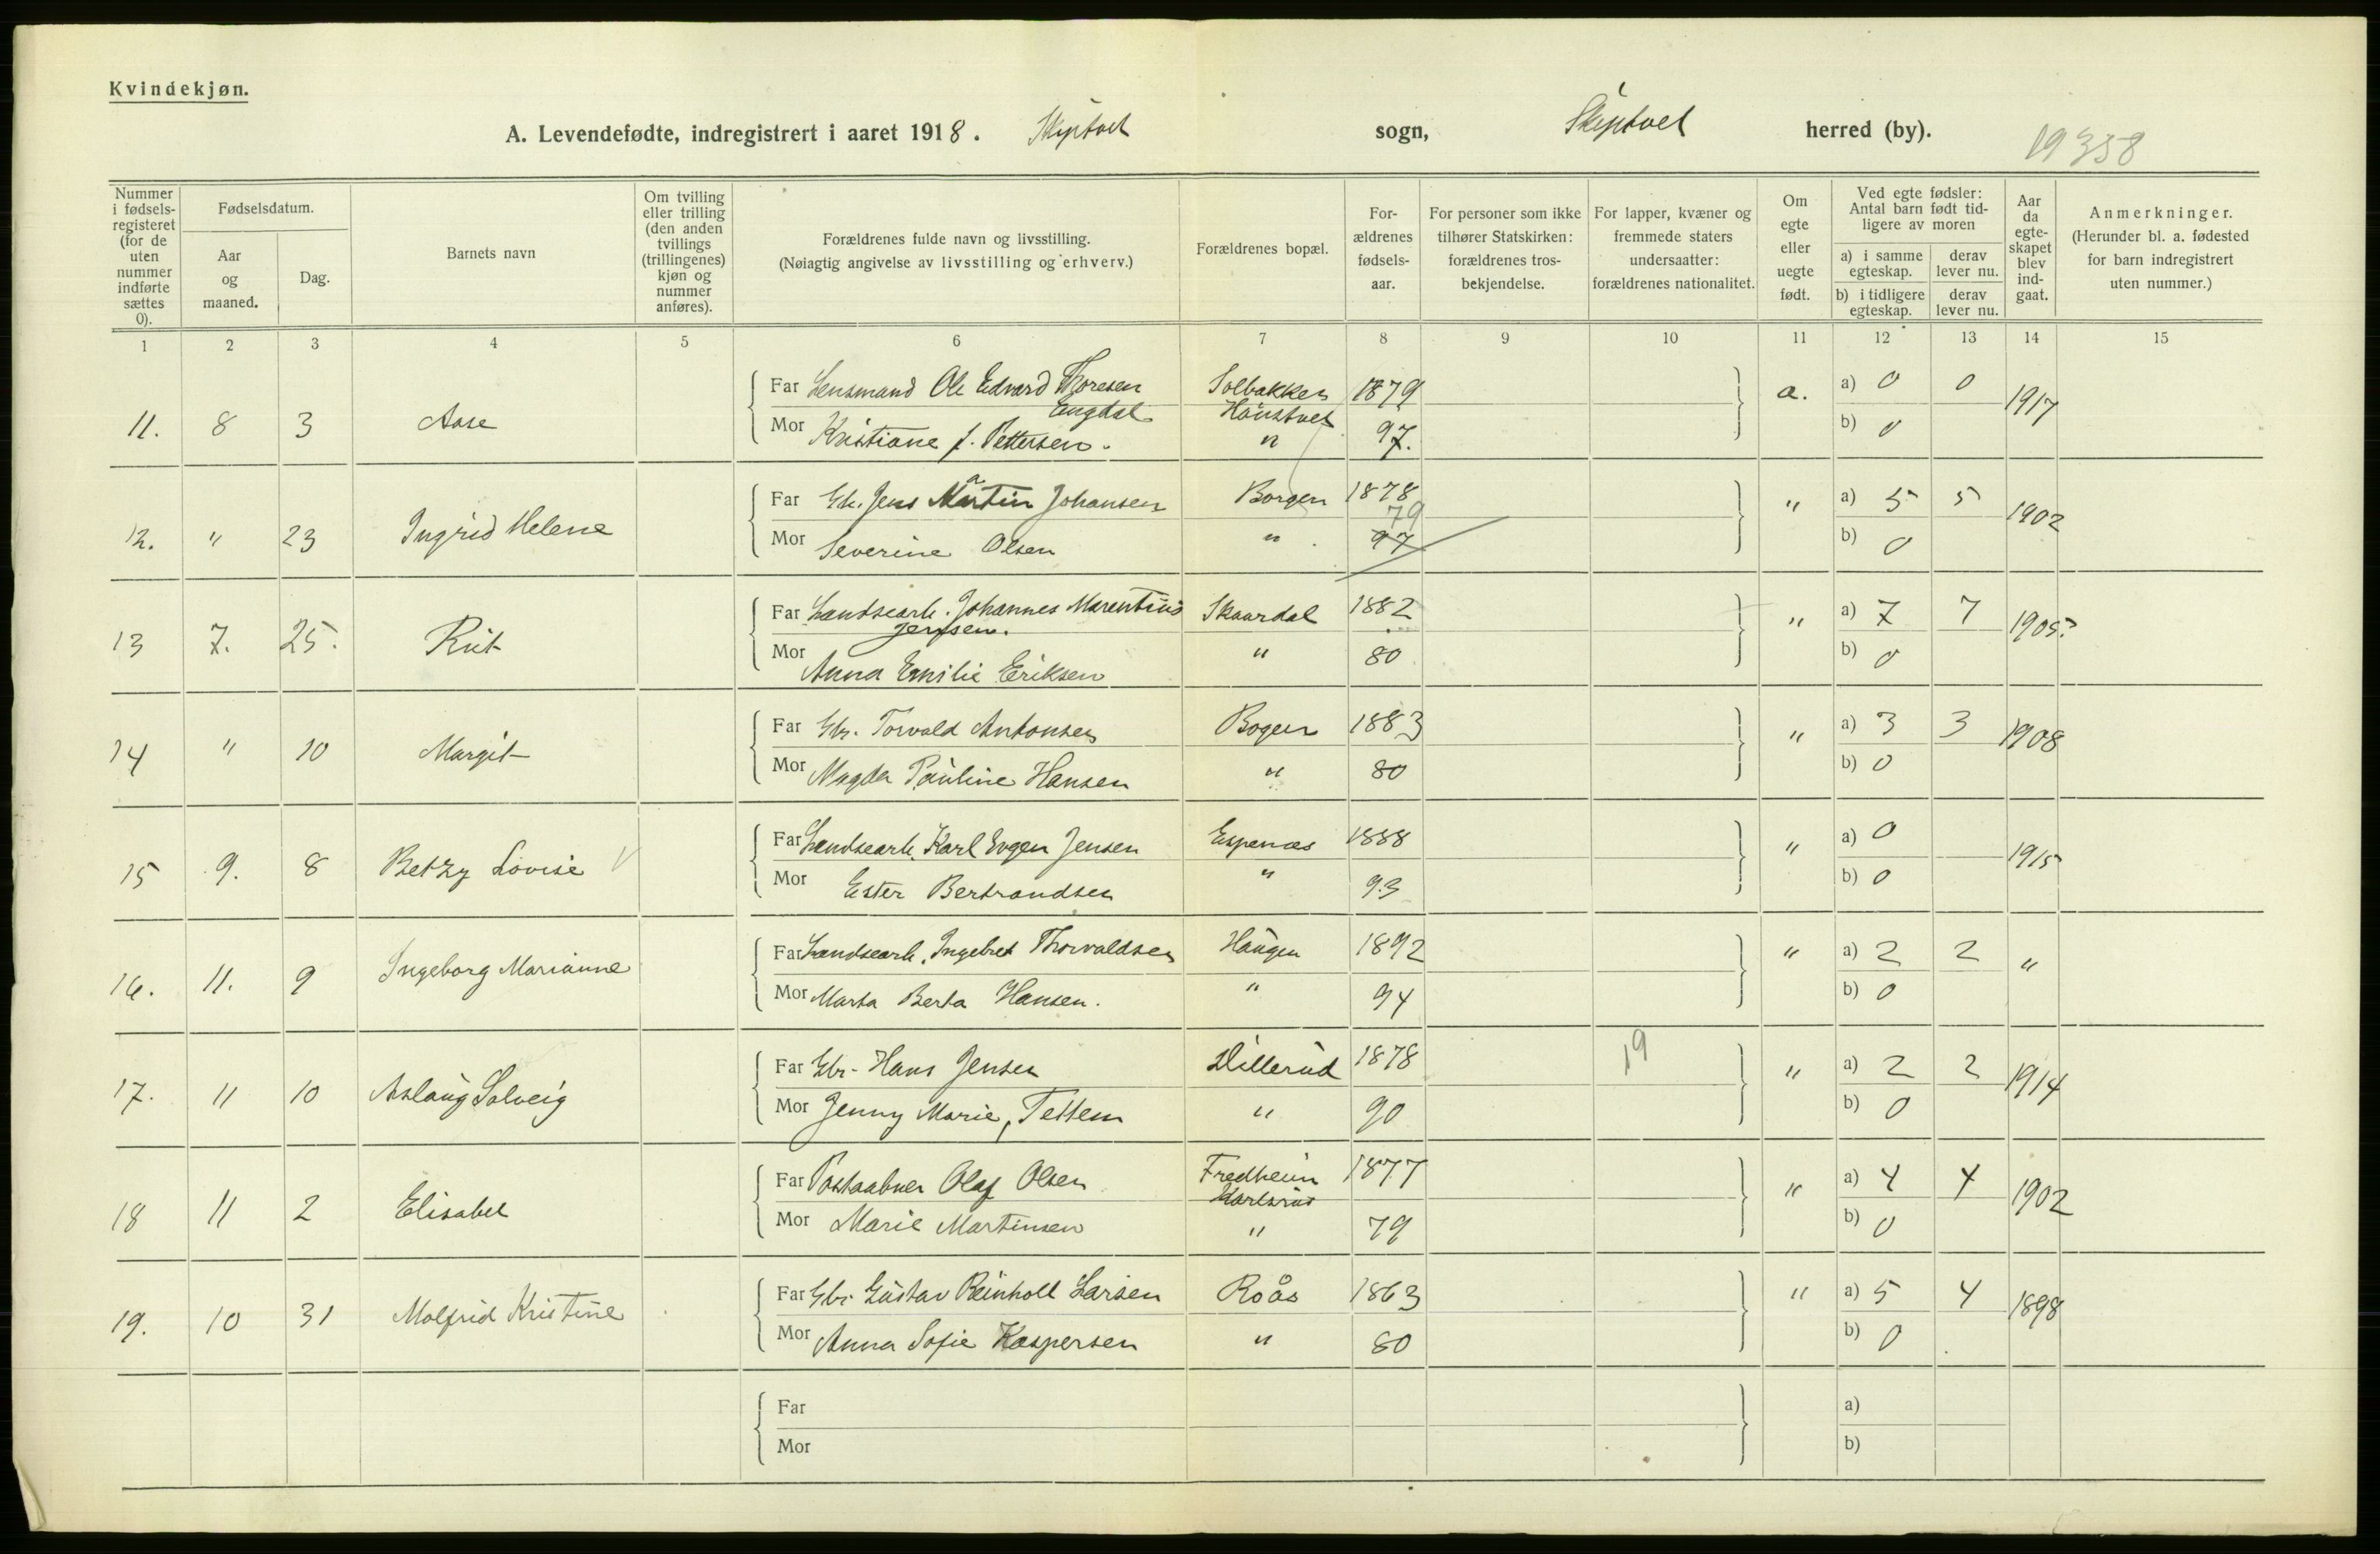 Kvindekjøn.
A. Levendefødte, indregistrert i aaret 1918. Skiptvet sogn, Skiptvet herred (by).
19358
Nummer i fødsels-registeret (for de uten nummer indførte sættes 0).
Fødselsdatum.
Aar og maaned.
Dag.
Barnets navn
Om tvilling eller trilling (den anden tvillings (trillingenes) kjøn og nummer anføres).
Forældrenes fulde navn og livsstilling.
(Nøiagtig angivelse av livsstilling og erhverv.)
Forældrenes bopæl.
For-ældrenes fødsels-aar.
For personer som ikke tilhører Statskirken: forældrenes tros-bekjendelse.
For lapper, kvæner og fremmede staters undersaatter: forældrenes nationalitet.
Om egte eller uegte født.
Ved egte fødsler: Antal barn født tid-ligere av moren
a) i samme egteskap.
derav lever nu.
b) i tidligere egteskap.
derav lever nu.
Aar da egte-skapet blev ind-gaat.
Anmerkninger.
(Herunder bl. a. fødested for barn indregistrert uten nummer.)
1 2 3 4 5 6 7 8 9 10 11 12 13 14 15
11. 8 3 Aase
Far Lensmand Ole Edvard Thoresen Engdal Solbakken 1879 a. a) 0 0 1917
Mor Kristiane f. Pettersen. " 97. b) 0
12. " 23 Ingrid Helene
Far Gbr. Jens Martin Johansen Borgen 1878 " a) 5 5 1902
Mor Severine Olsen " 97 79 b) 0
13 7. 25. Rut
Far Landsearb. Johannes Marentius Jensen. Skaardal 1882 " a) 7 7 1905
Mor Anna Emilie Eriksen " 80 b) 0
14 " 10 Margit
Far Gbr. Torvald Antonsen Bogen 1883 " a) 3 3 1908
Mor Magda Pauline Hansen " 80 b) 0
15 9. 8 Betzy Lovise
Far Landsearb. Karl Evgen Jensen Espenæs 1888 " a) 0 1915
Mor Ester Bertrandsen " 93 b) 0
16. 11. 9 Ingeborg Marianne
Far Landsearb. Ingebret Thorvaldsen Haugen 1892 " a) 2 2 "
Mor Marta Berta Hansen. " 94 b) 0
17. 11 10 Aslaug Solveig
Far Gbr. Hans Jensen Dillerud 1878 19 " a) 2 2 1914
Mor Jenny Marie, Tettem " 90 b) 0
18 11 2 Elisabet
Far Postaabner Olaf Olsen Fredheim Karlsrud 1877 " a) 4 4 1902
Mor Marie Martinsen " 79 b) 0
19. 10 31 Molfrid Kristine
Far Gbr. Gustav Reinholt Larsen Roås 1863 " a) 5 4 1898
Mor Anna Sofie Kaspersen " 80 b) 0
Far a)
Mor b)